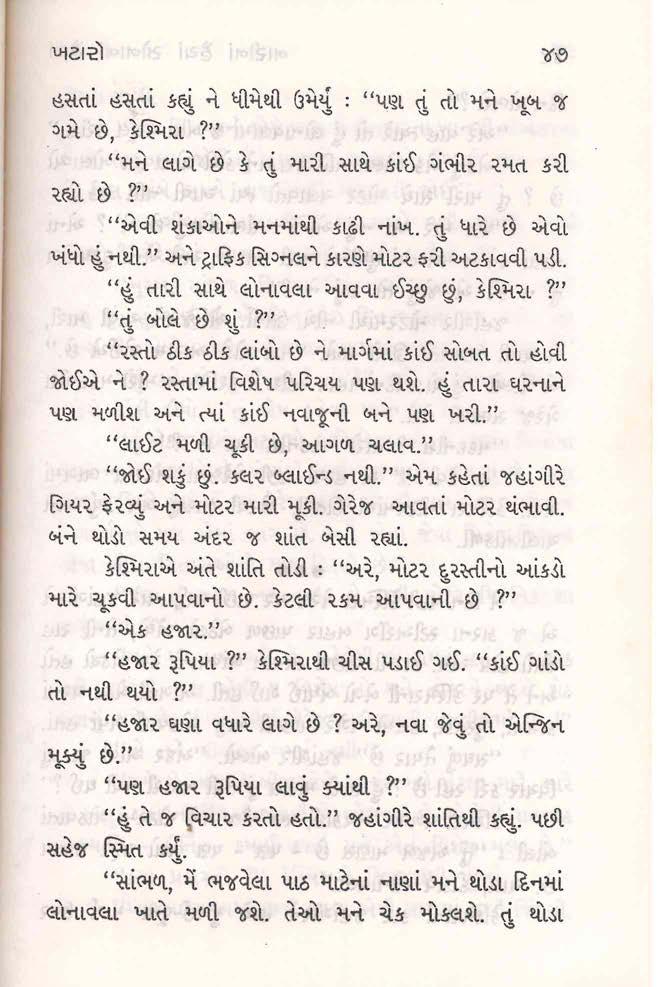 ખટારો ૪૭
હસતાં હસતાં કહ્યું ને ધીમેથી ઉમેર્યું : “પણ તું તો મને ખૂબ જ
ગમે છે, કેશ્મિરા ?”
“મને લાગે છે કે તું મારી સાથે કાંઈ ગંભીર રમત કરી
રહ્યો છે ?”
“એવી શંકાઓને મનમાંથી કાઢી નાંખ. તું ધારે છે એવો
ખંધો હું નથી.” અને ટ્રાફિક સિગ્નલને કારણે મોટર ફરી અટકાવવી પડી.
“હું તારી સાથે લોનાવલા આવવા ઈચ્છુ છું, કેશ્મિરા ?”
“તું બોલે છે શું ?”
“રસ્તો ઠીક ઠીક લાંબો છે ને માર્ગમાં કાંઈ સોબત તો હોવી
જોઈએ ને ? રસ્તામાં વિશેષ પરિચય પણ થશે. હું તારા ઘરનાને
પણ મળીશ અને ત્યાં કાંઈ નવાજૂની બને પણ ખરી.”
“લાઈટ મળી ચૂકી છે, આગળ ચલાવ.”
“જોઈ શકું છું. કલર બ્લાઈન્ડ નથી.” એમ કહેતાં જહાંગીરે
ગિયર ફેરવ્યું અને મોટર મારી મૂકી. ગેરેજ આવતાં મોટર થંભાવી.
બંને થોડો સમય અંદર જ શાંત બેસી રહ્યાં.
કેશ્મિરાએ અંતે શાંતિ તોડી : “અરે, મોટર દુરસ્તીનો આંકડો
મારે ચૂકવી આપવાનો છે. કેટલી રકમ આપવાની છે ?”
“એક હજાર.”
“હજાર રૂપિયા ?” કેશ્મિરાથી ચીસ પડાઈ ગઈ. “કાંઈ ગાંડો
તો નથી થયો ?”
“હજાર ઘણા વધારે લાગે છે ? અરે, નવા જેવું તો એન્જિન
મૂક્યું છે.”
“પણ હજાર રૂપિયા લાવું ક્યાંથી ?”
“હું તે જ વિચાર કરતો હતો.” જહાંગીરે શાંતિથી કહ્યું. પછી
સહેજ સ્મિત કર્યું.
“સાંભળ, મેં ભજવેલા પાઠ માટેના નાણાં મને થોડા દિનમાં
લોનાવલા ખાતે મળી જશે. તેઓ મને ચેક મોકલશે. તું થોડા